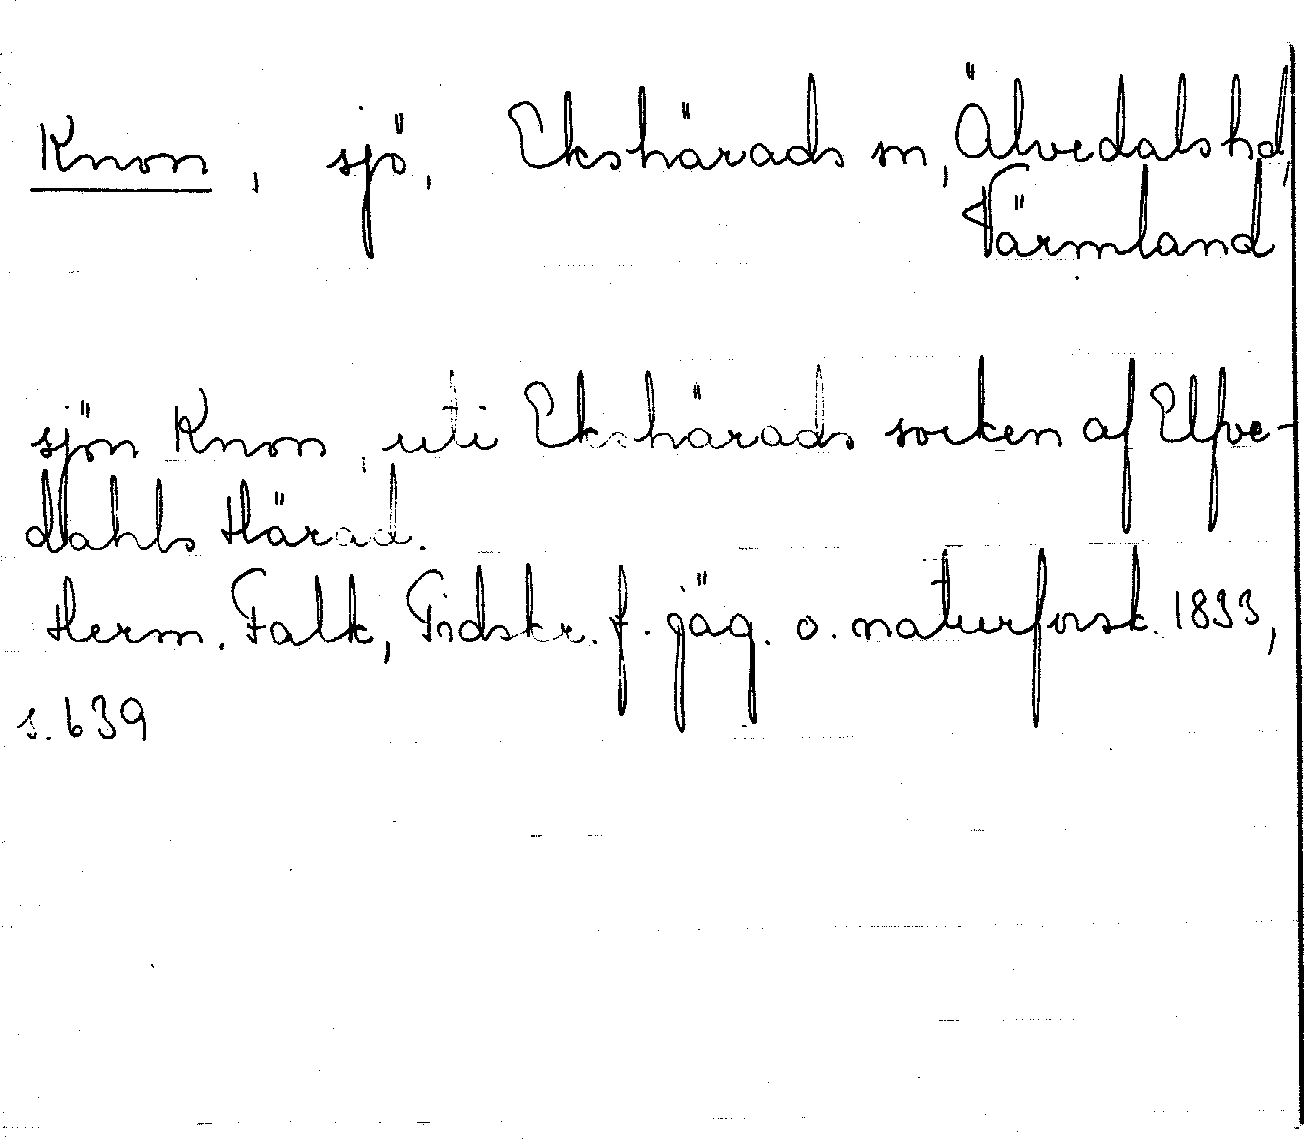 Knon, sjö, Ekshärads sn, Älvedals hd,
Värmland
sjön Knon, uti Ekshärads socken af Elfve-
dahls Härad.
Herm. Falk, Tidskr. f. jäg. o. naturforsk. 1833,
s. 639